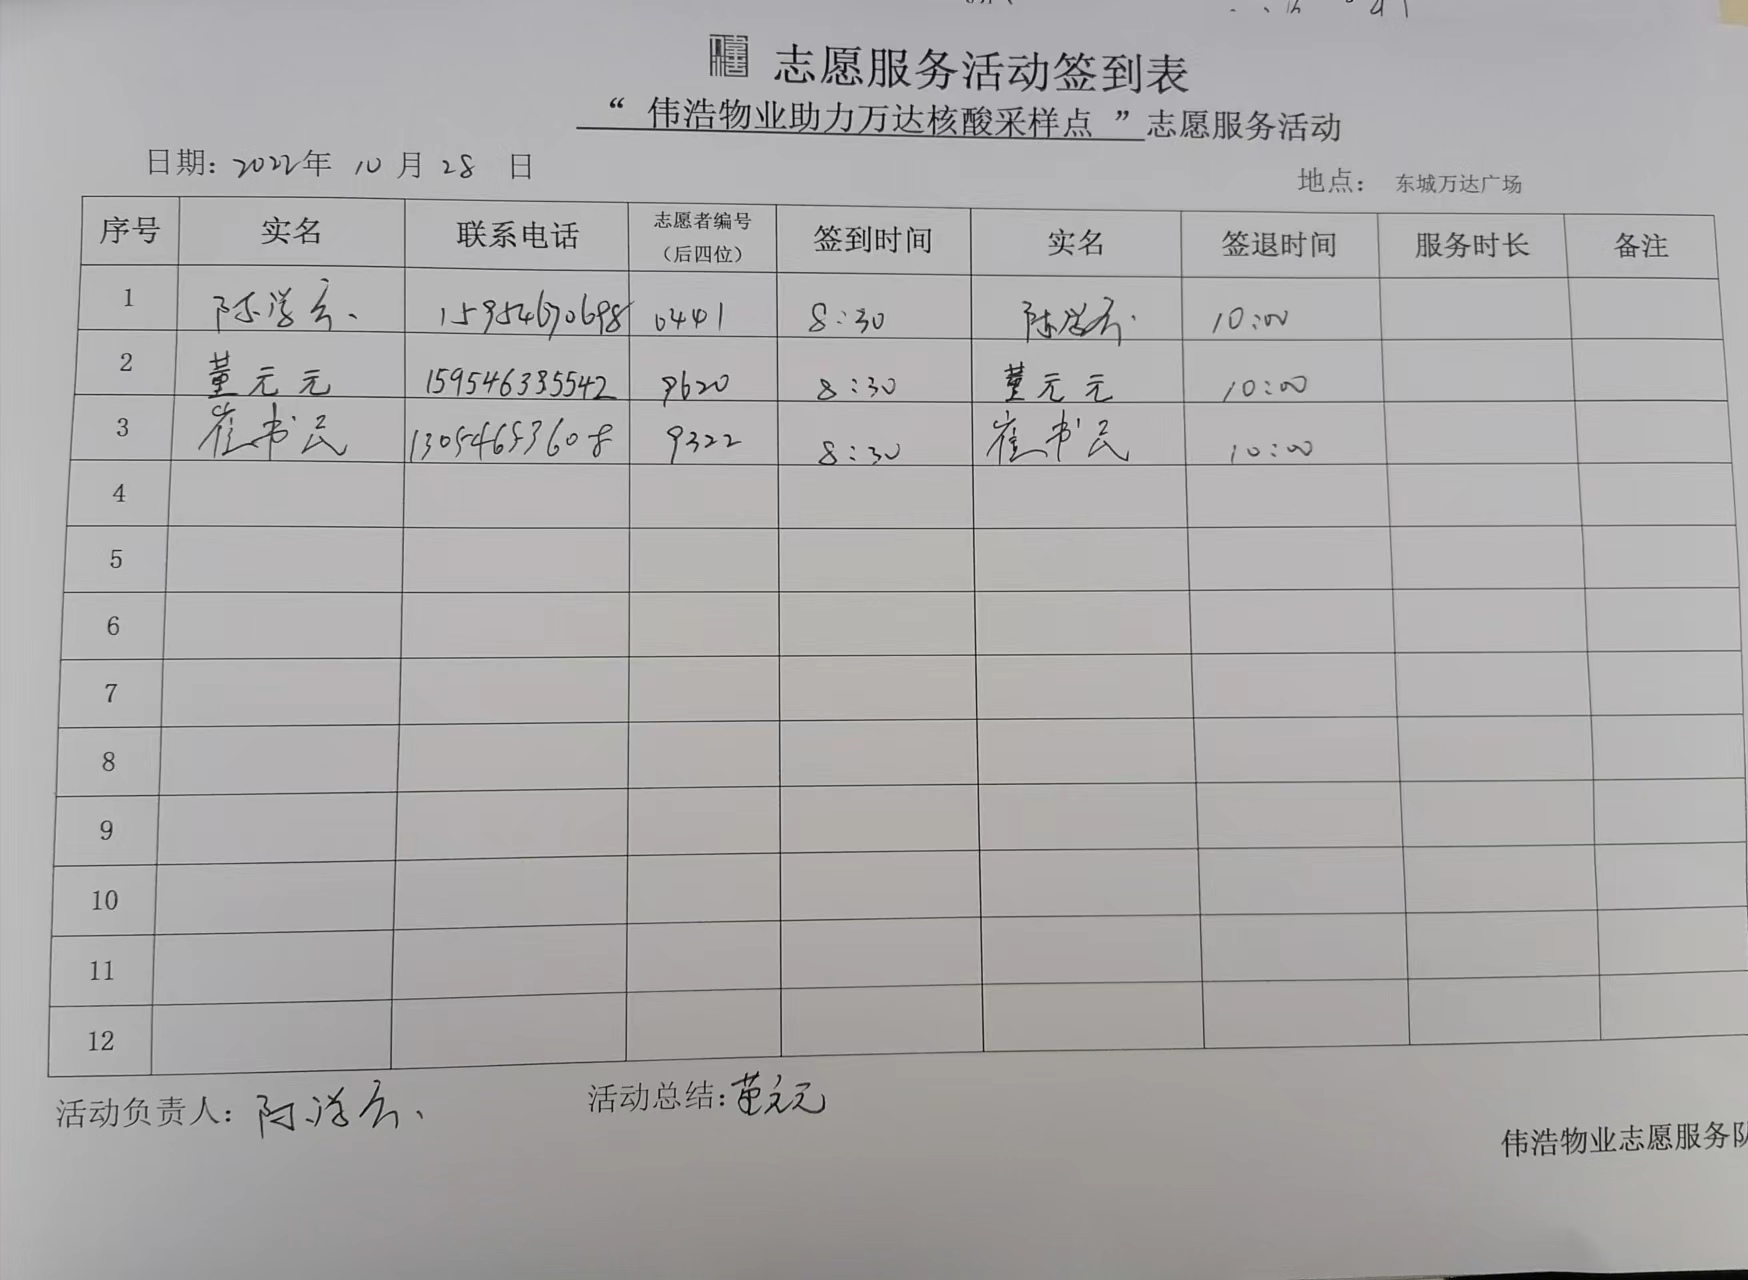 志愿服务活动签到表
“ 伟浩物业助力万达核酸采样点 ”志愿服务活动
日期：2022年 10 月 28 日 地点： 东城万达广场
序号 实名 联系电话 志愿者编号（后四位） 签到时间 实名 签退时间 服务时长 备注
1 陈学云 15954670698 0441 8:30 陈学云 10:00
2 董元元 159546335542 9620 8:30 董元元 10:00
3 崔书民 13054653608 9322 8:30 崔书民 10:00
4
5
6
7
8
9
10
11
12
活动负责人：陈学云 活动总结：董元元
伟浩物业志愿服务队